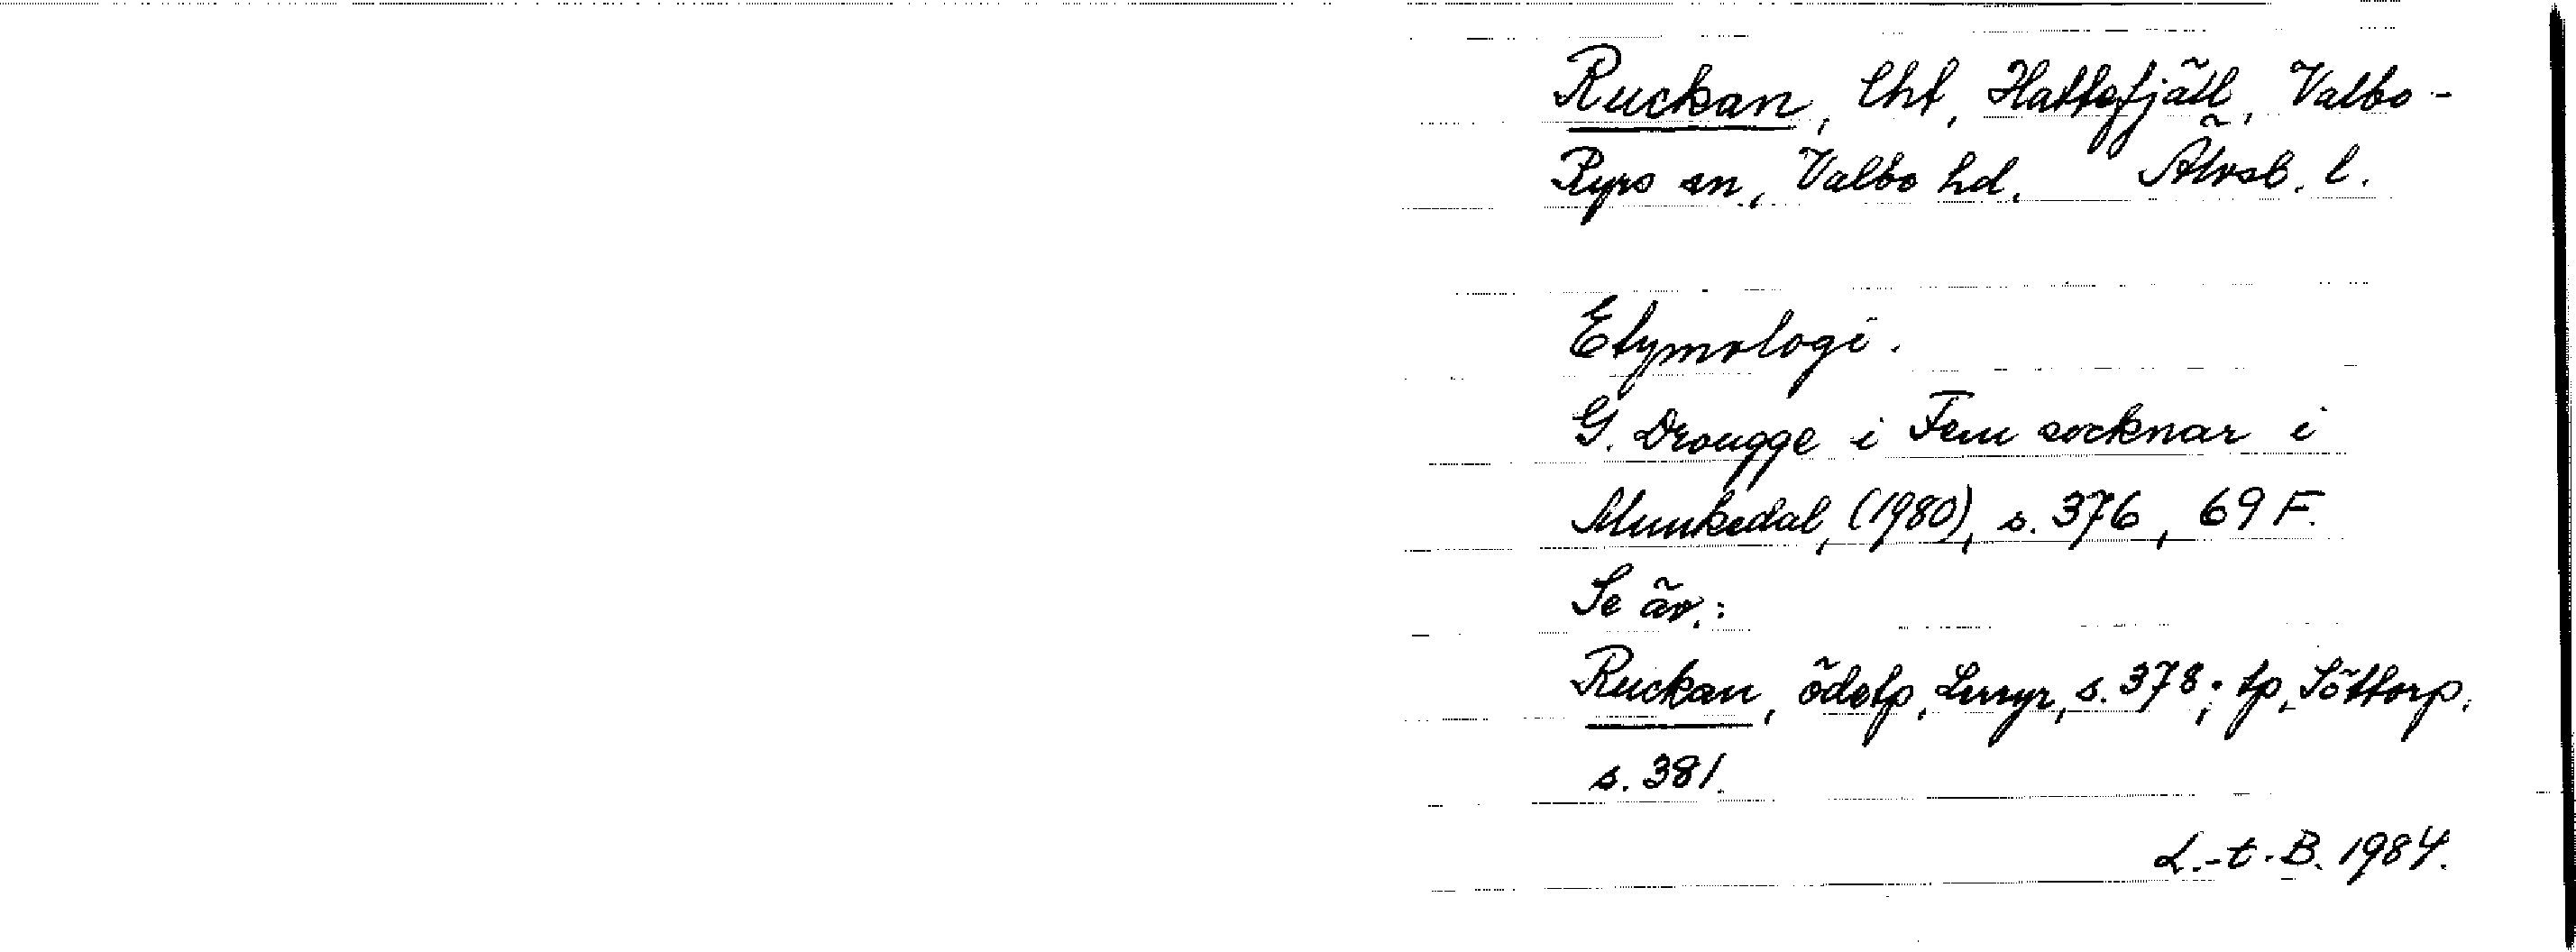 Ruckan, lht, Hattefjäll, Valbo-
Ryrs sn, Valbo hd. Älvsb. l.
Etymologi.
G. Drougge i Fem socknar i
Munkedal, (1980), s. 376, 69 F.
Se äv.:
Ruckan, ödetp, s. 378; tp, Söttorp,
s. 381.
L.-t. B. 1984.